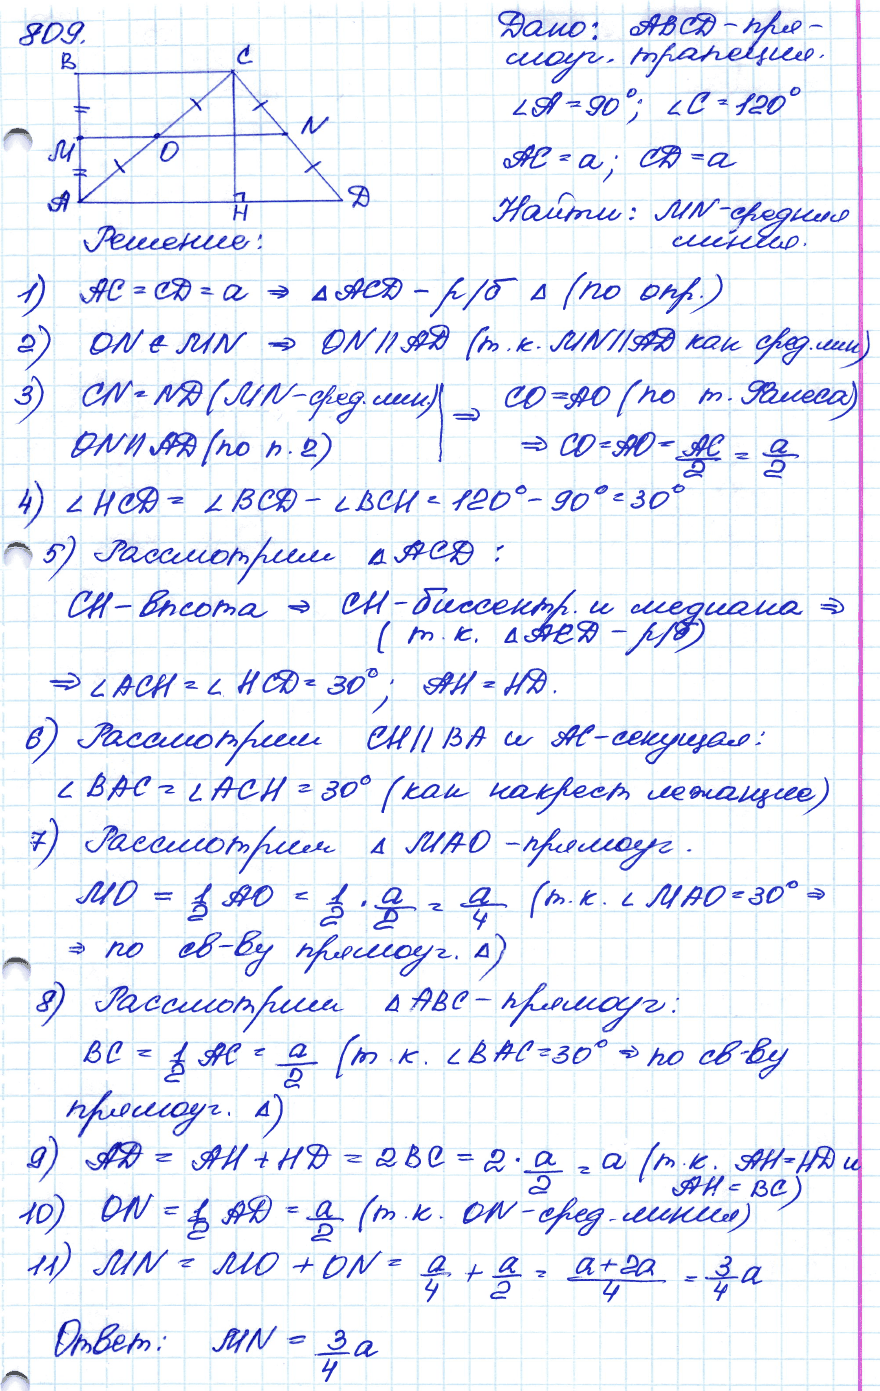 809.
Дано: ABCD - пря-
моуг. трапеция.
∠A = 90°; ∠C = 120°
AC = a; CD = a
Найти: MN - средняя
линия.
B C
M O N
A H D
Решение:
1) AC = CD = a ⇒ △ACD - р/б △ (по опр.)
2) ON ∈ MN ⇒ ON || AD (т.к. MN || AD как сред. лин)
3) CN = ND (MN - сред. лин) ⇒ CO = AO (по т. Фалеса)
ON || AD (по п. 2) ⇒ CO = AO = AC/2 = a/2
4) ∠HCD = ∠BCD - ∠BCH = 120° - 90° = 30°
5) Рассмотрим △ACD:
CH - высота ⇒ CH - биссектр. и медиана ⇒
(т.к. △ACD - р/б)
⇒ ∠ACH = ∠HCD = 30°; AH = HD.
6) Рассмотрим CH || BA и AC - секущая:
∠BAC = ∠ACH = 30° (как накрест лежащие)
7) Рассмотрим △ MAO - прямоуг.
MO = 1/2 AO = 1/2 · a/2 = a/4 (т.к. ∠MAO = 30° ⇒
⇒ по св-ву прямоуг. △)
8) Рассмотрим △ABC - прямоуг:
BC = 1/2 AC = a/2 (т.к. ∠BAC = 30° ⇒ по св-ву
прямоуг. △)
9) AD = AH + HD = 2BC = 2 · a/2 = a (т.к. AH = HD и
AH = BC)
10) ON = 1/2 AD = a/2 (т.к. ON - сред. линия)
11) MN = MO + ON = a/4 + a/2 = a+2a/4 = 3/4 a
Ответ: MN = 3/4 a